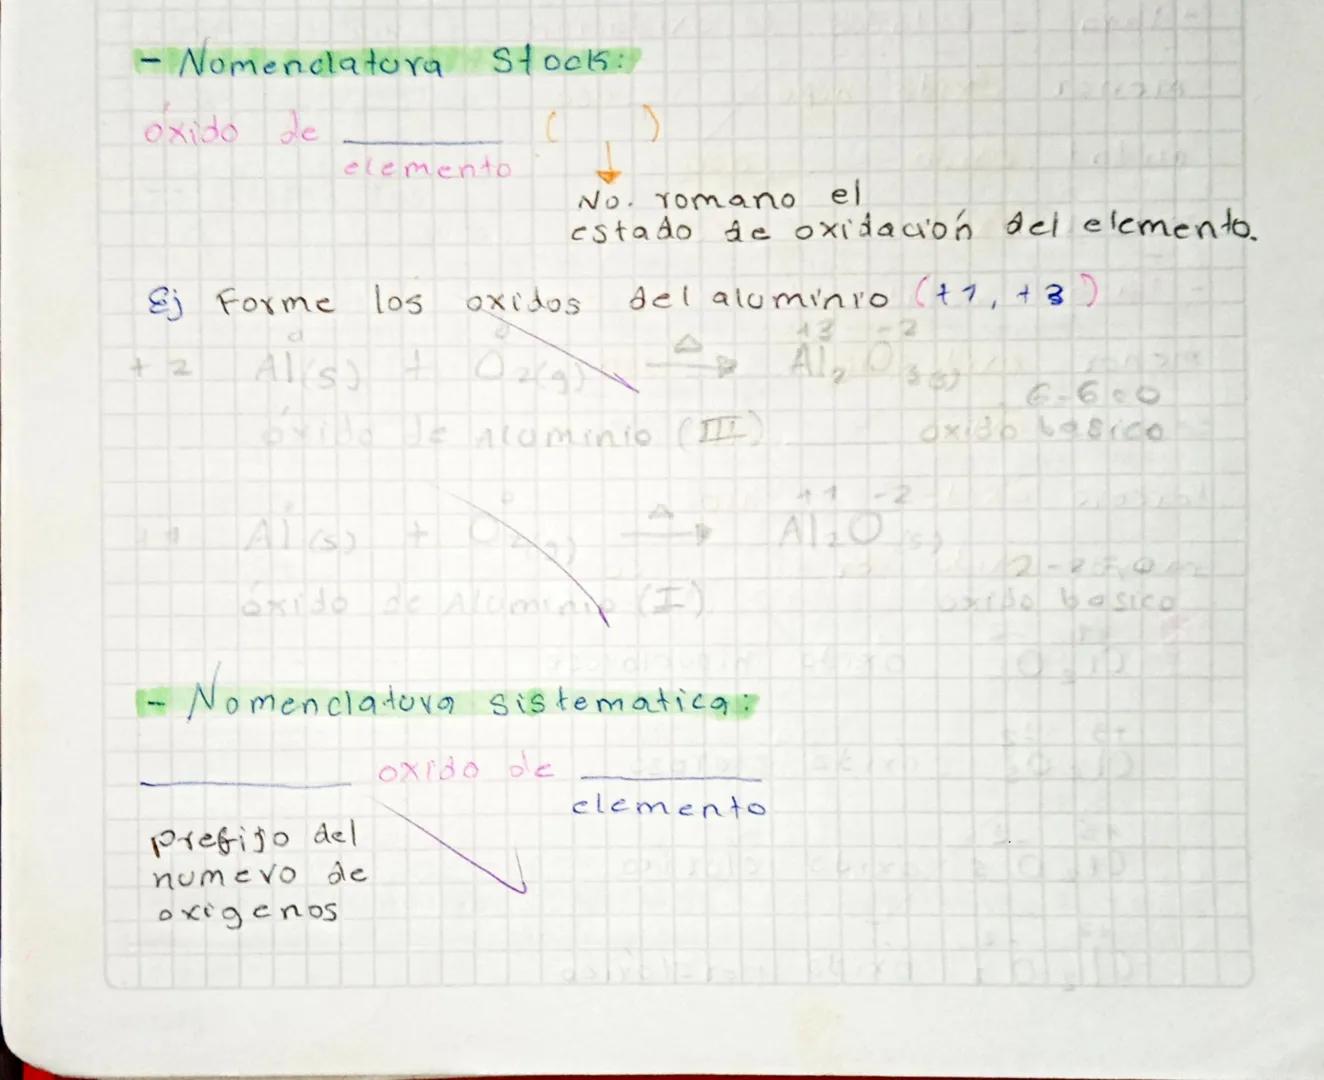 - Nomenclatura Stock:
óxido de ________ ( )
elemento
No. romano el
estado de oxidación del elemento.
Ej Forme los oxidos del aluminio (+1, +3)
+2 Al(s) + O2(g) Δ→ Al2O3(s)
+3 -2
6-6=0
óxido de aluminio (III) oxido basico
+1 -2
Al(s) + O2(g) Δ→ Al2O(s)
2-2=0
óxido de Aluminio (I) oxido basico
- Nomenclatura sistematica:
________ oxido de ________
elemento
prefijo del
numero de
oxigenos